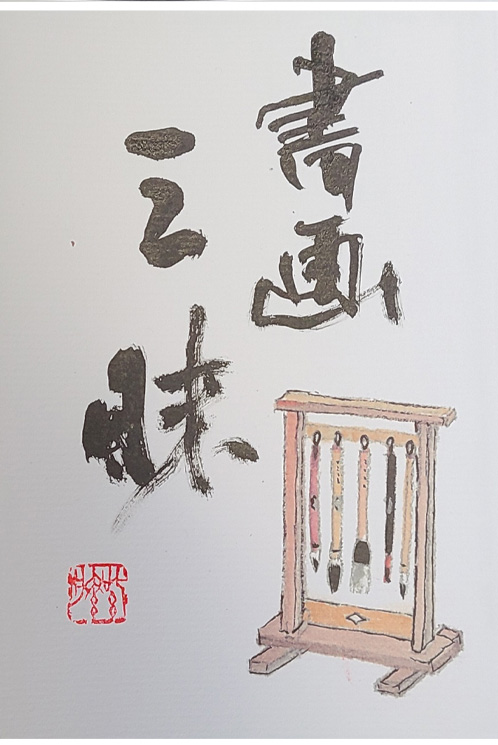 書画
三昧